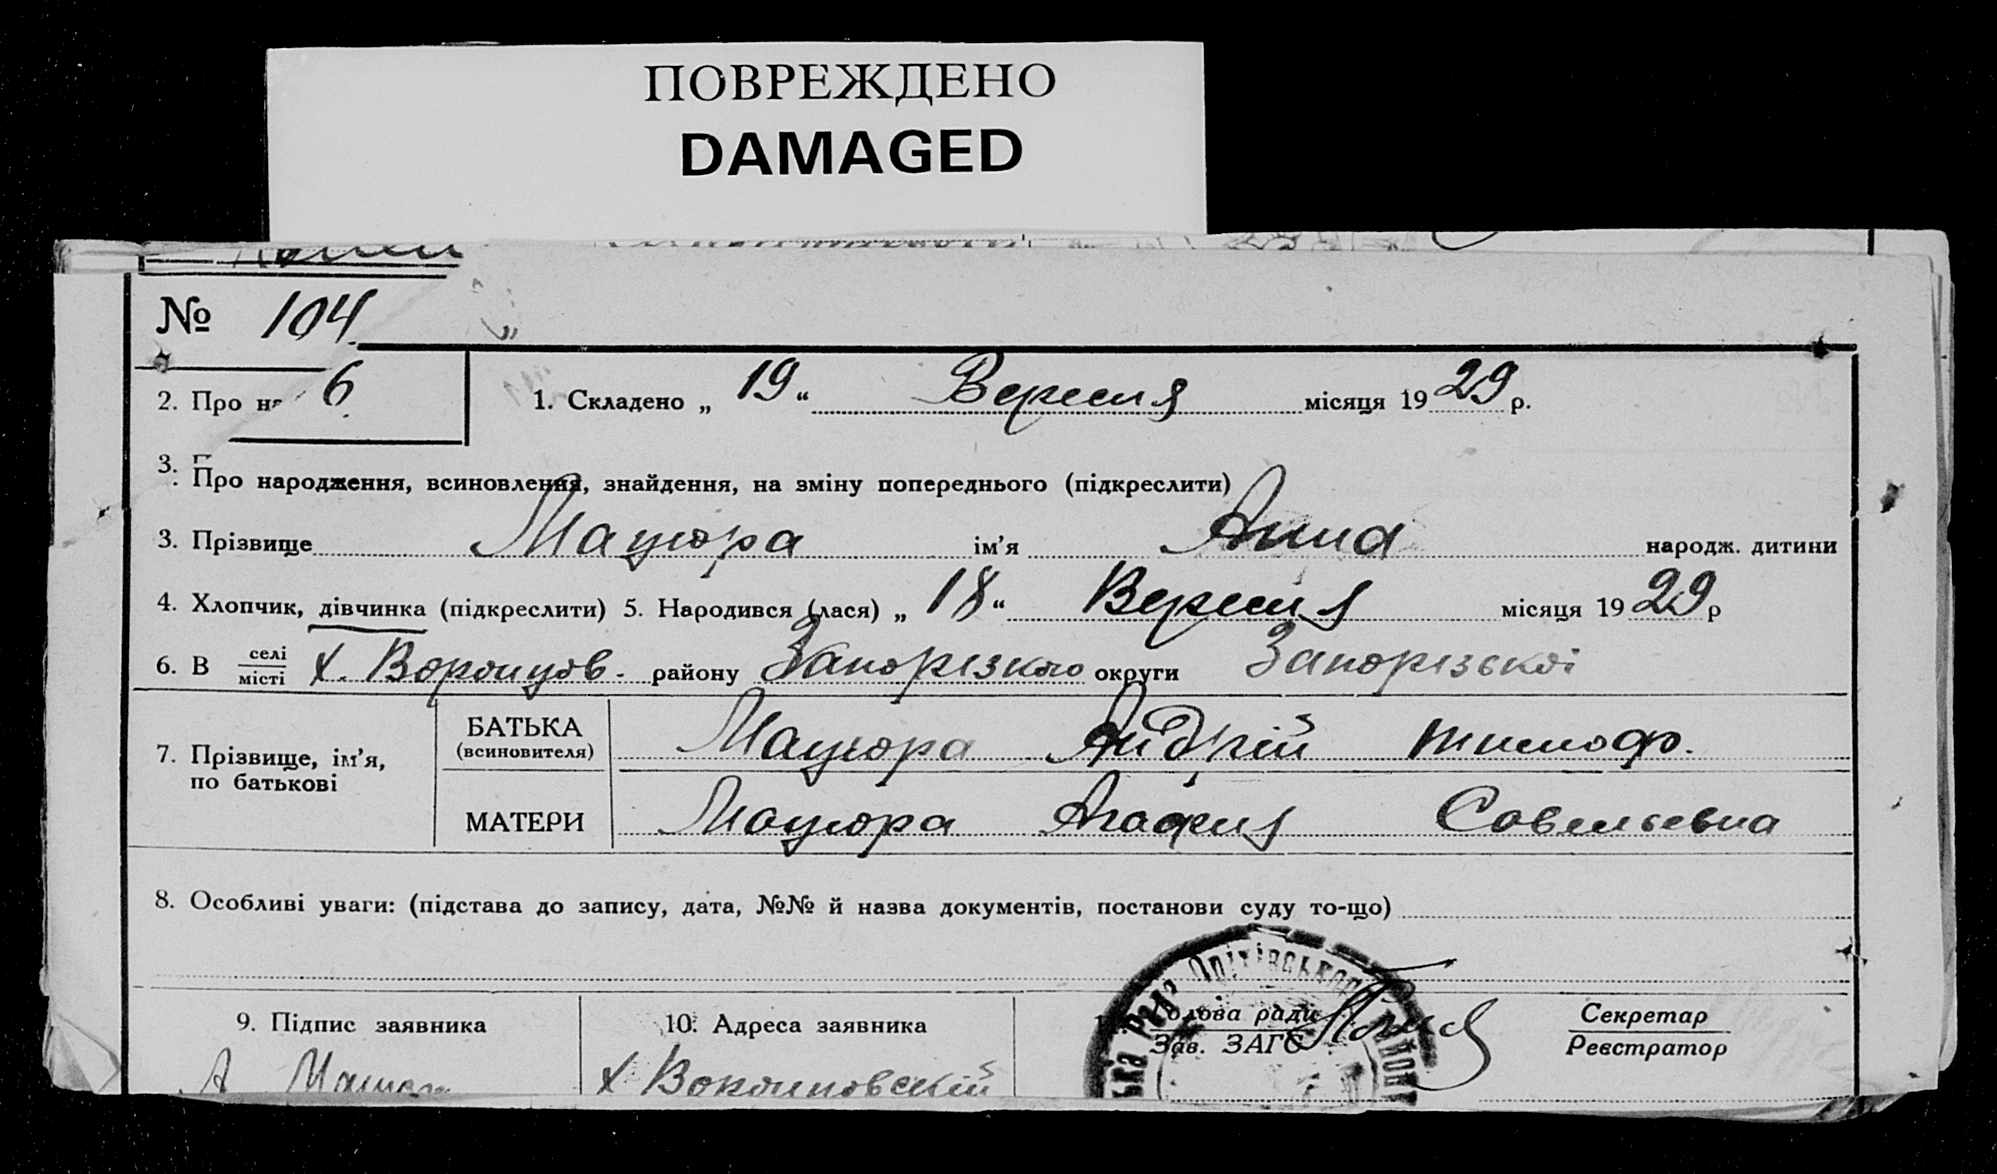 ПОВРЕЖДЕНО
DAMAGED
№ 104
2. Про на 6
1. Складено „ 19 “ Вересня місяця 1929 р.
3.
Про народження, всиновлення, знайдення, на зміну попереднього (підкреслити)
3. Прізвище Мацюра ім’я Анна народж. дитини
4. Хлопчик, дівчинка (підкреслити) 5. Народився (лася) „ 18 “ Вересня місяця 1929 р
6. В селі місті х. Воронцов. району Запорізкого округи Запорізької
7. Прізвище, ім’я, по батькові
БАТЬКА (всиновителя) Мацюра Андрій Тимоф.
МАТЕРИ Мацюра Агафия Савельевна
8. Особливі уваги: (підстава до запису, дата, №№ й назва документів, постанови суду то-що)
9. Підпис заявника 10. Адреса заявника Голова ради Зав. ЗАГС Секретар Реєстратор
А х Воронцовский
Оріхівського